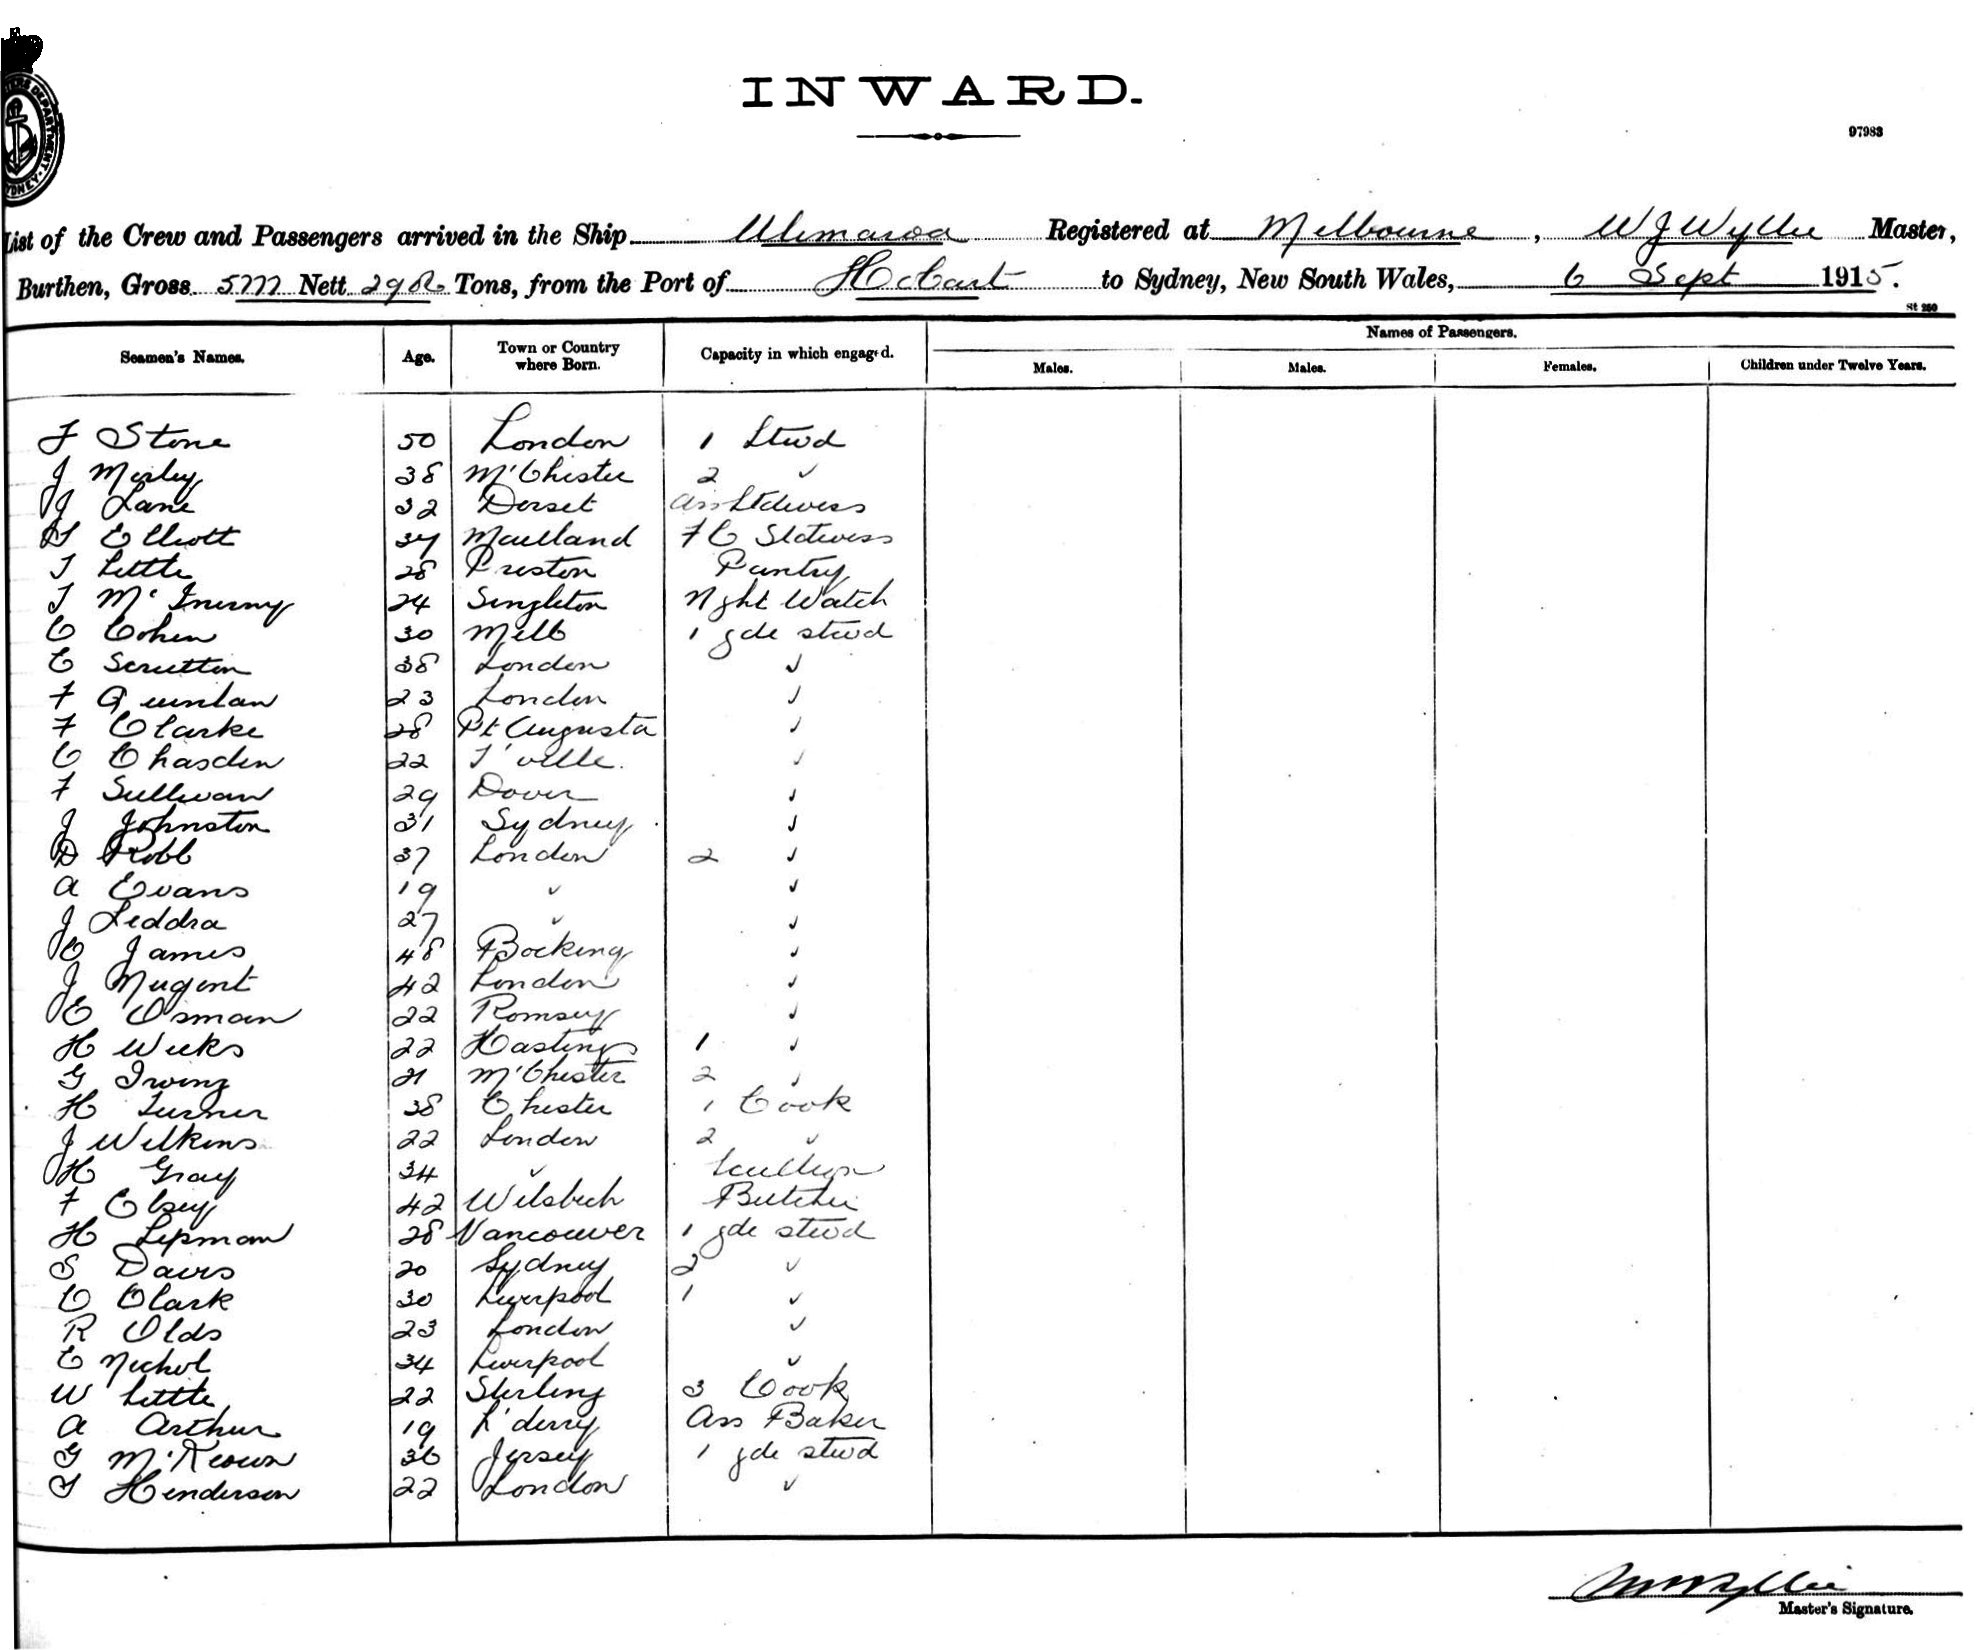 INWARD.
97983
List of the Crew and Passengers arrived in the Ship Ulimaroa Registered at Melbourne, W J Wyllie Master,
Burthen, Gross 5777 Nett Tons, from the Port of Hobart to Sydney, New South Wales, 6 Sept 1915.
St 250
Seamen's Names. Age. Town or Country where Born. Capacity in which engaged. Names of Passengers.
Males. Males. Females. Children under Twelve Years.
F Stone 50 London 1 Stwd
J Morley 38 M'Chester 2 "
J Lane 32 Dorset Ass Stdwess
H Elliott 34 Maitland F C Stdwess
T Little 28 Preston Pantry
T McInerny 24 Singleton Nght Watch
C Cohen 30 Melb 1 gde stwd
E Scrutton 38 London "
F Quinlan 23 London "
F Clarke 28 Pt Augusta "
C Chasden 22 T'ville. "
F Sullivan 29 Dover "
J Johnston 31 Sydney "
D Robb 37 London 2 "
A Evans 19 " "
J Leddra 27 " "
C James 48 Bocking "
J Nugent 42 London "
E Osman 22 Romsey "
H Weeks 22 Hastings 1 "
G Irving 21 M'Chester 2 "
H Turner 38 Chester 1 Cook
J Wilkins 22 London 2 "
H Gray 34 " Scullion
F Elsey 42 Wisbech Butcher
H Lipman 28 Vancouver 1 gde stwd
S Davis 20 Sydney 2 "
C Clark 30 Liverpool 1 "
R Olds 23 London "
E Nichol 34 Liverpool "
W Little 22 Sterling 3 Cook
A Arthur 19 L'derry Ass Baker
G McKeown 36 Jersey 1 gde stwd
T Henderson 22 London "
Master's Signature.